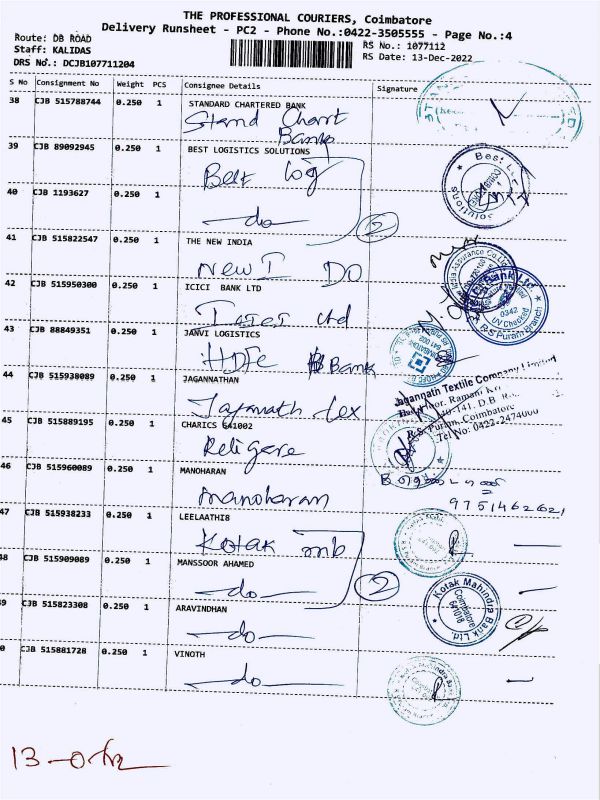 THE PROFESSIONAL COURIERS, Coimbatore
Delivery Runsheet - PC2 - Phone No.:0422-3505555 - Page No.:4
Route: DB ROAD
RS No.: 1077112
Staff: KALIDAS
RS Date: 13-Dec-2022
DRS No.: DCJB107711204
S No Consignment No Weight PCS Consignee Details Signature
38 CJB 515788744 0.250 1 STANDARD CHARTERED BANK
Stand Chart
Bank
39 CJB 89092945 0.250 1 BEST LOGISTICS SOLUTIONS
Best Log
Solutions
40 CJB 1193627 0.250 1
do
2
41 CJB 515822547 0.250 1 THE NEW INDIA
New I DO
India Assurance Co.
42 CJB 515950300 0.250 1 ICICI BANK LTD
Icici Ltd
Bank Ltd
0342
UV Checked
R.S Puram Branch
43 CJB 88849351 0.250 1 JANVI LOGISTICS
HDFC Bank
44 CJB 515938089 0.250 1 JAGANNATHAN
Jagannath Tex
Jagannath Textile Company Limited
Ramani
141, D.B
R.S. Puram, Coimbatore
Tel No: 0422-2474000
45 CJB 515889195 0.250 1 CHARICS 641002
Religare
46 CJB 515960089 0.250 1 MANOHARAN
Manoharan
9751462621
47 CJB 515938233 0.250 1 LEELAATHI8
Kotak mb
48 CJB 515909089 0.250 1 MANSSOOR AHAMED
do
2
Kotak Mahindra Bank Ltd.
Coimbatore
641018
49 CJB 515823308 0.250 1 ARAVINDHAN
do
0 CJB 515881728 0.250 1 VINOTH
do